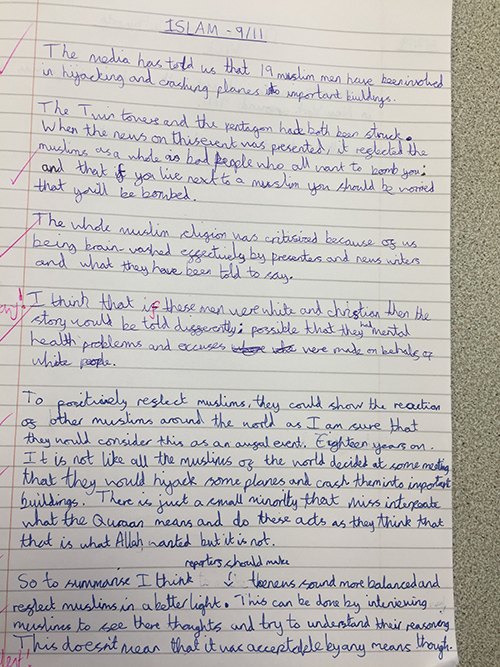 ISLAM - 9/11
The media has told us that 19 muslim men have been involved
in hijacking and crashing planes to important buildings.
The Twin towers and the pentagon had both been struck.
When the news on this event was presented, it reflected the
muslims as a whole as bad people who all want to bomb you;
and that if you live next to a muslim you should be worried
that you'll be bombed.
The whole muslim religion was critisized because of us
being brain-washed effectively by presenters and news writers
and what they have been told to say.
I think that if these men were white and christian then the
story would be told differently; possible that they had mental
health problems and excuses were made on behalf of
white people.
To positively reflect muslims, they could show the reaction
of other muslims around the world as I am sure that
they would consider this as an awful event. Eighteen years on.
It is not like all the muslims of the world decided at some meeting
that they would hijack some planes and crash them into important
buildings. There is just a small minority that miss interperate
what the Quraan means and do these acts as they think that
that is what Allah wanted but it is not.
reporters should make
So to summarise I think the news sound more balanced and
reflect muslims in a better light. This can be done by interviewing
muslims to see there thoughts and try to understand their reasoning
This doesn't mean that it was acceptable by any means though.